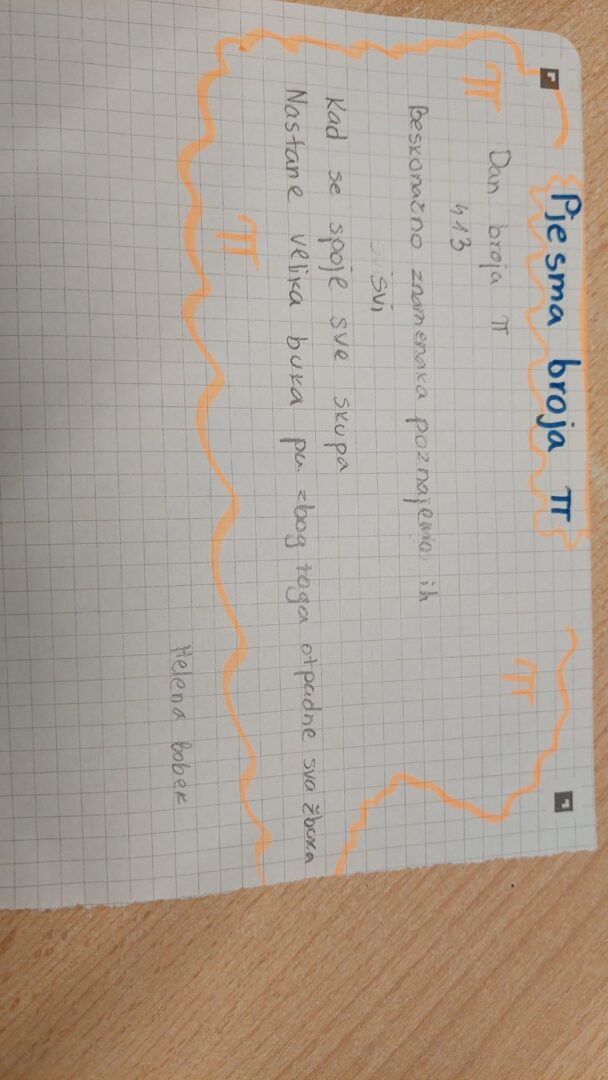 Pjesma broja π
π
π
Dan broja π
413
Beskonačno znamenaka poznajemo ih
svi
Kad se spoje sve skupa
Nastane velika buka pa zbog toga otpadne sva žbuka
π
Helena Bobek